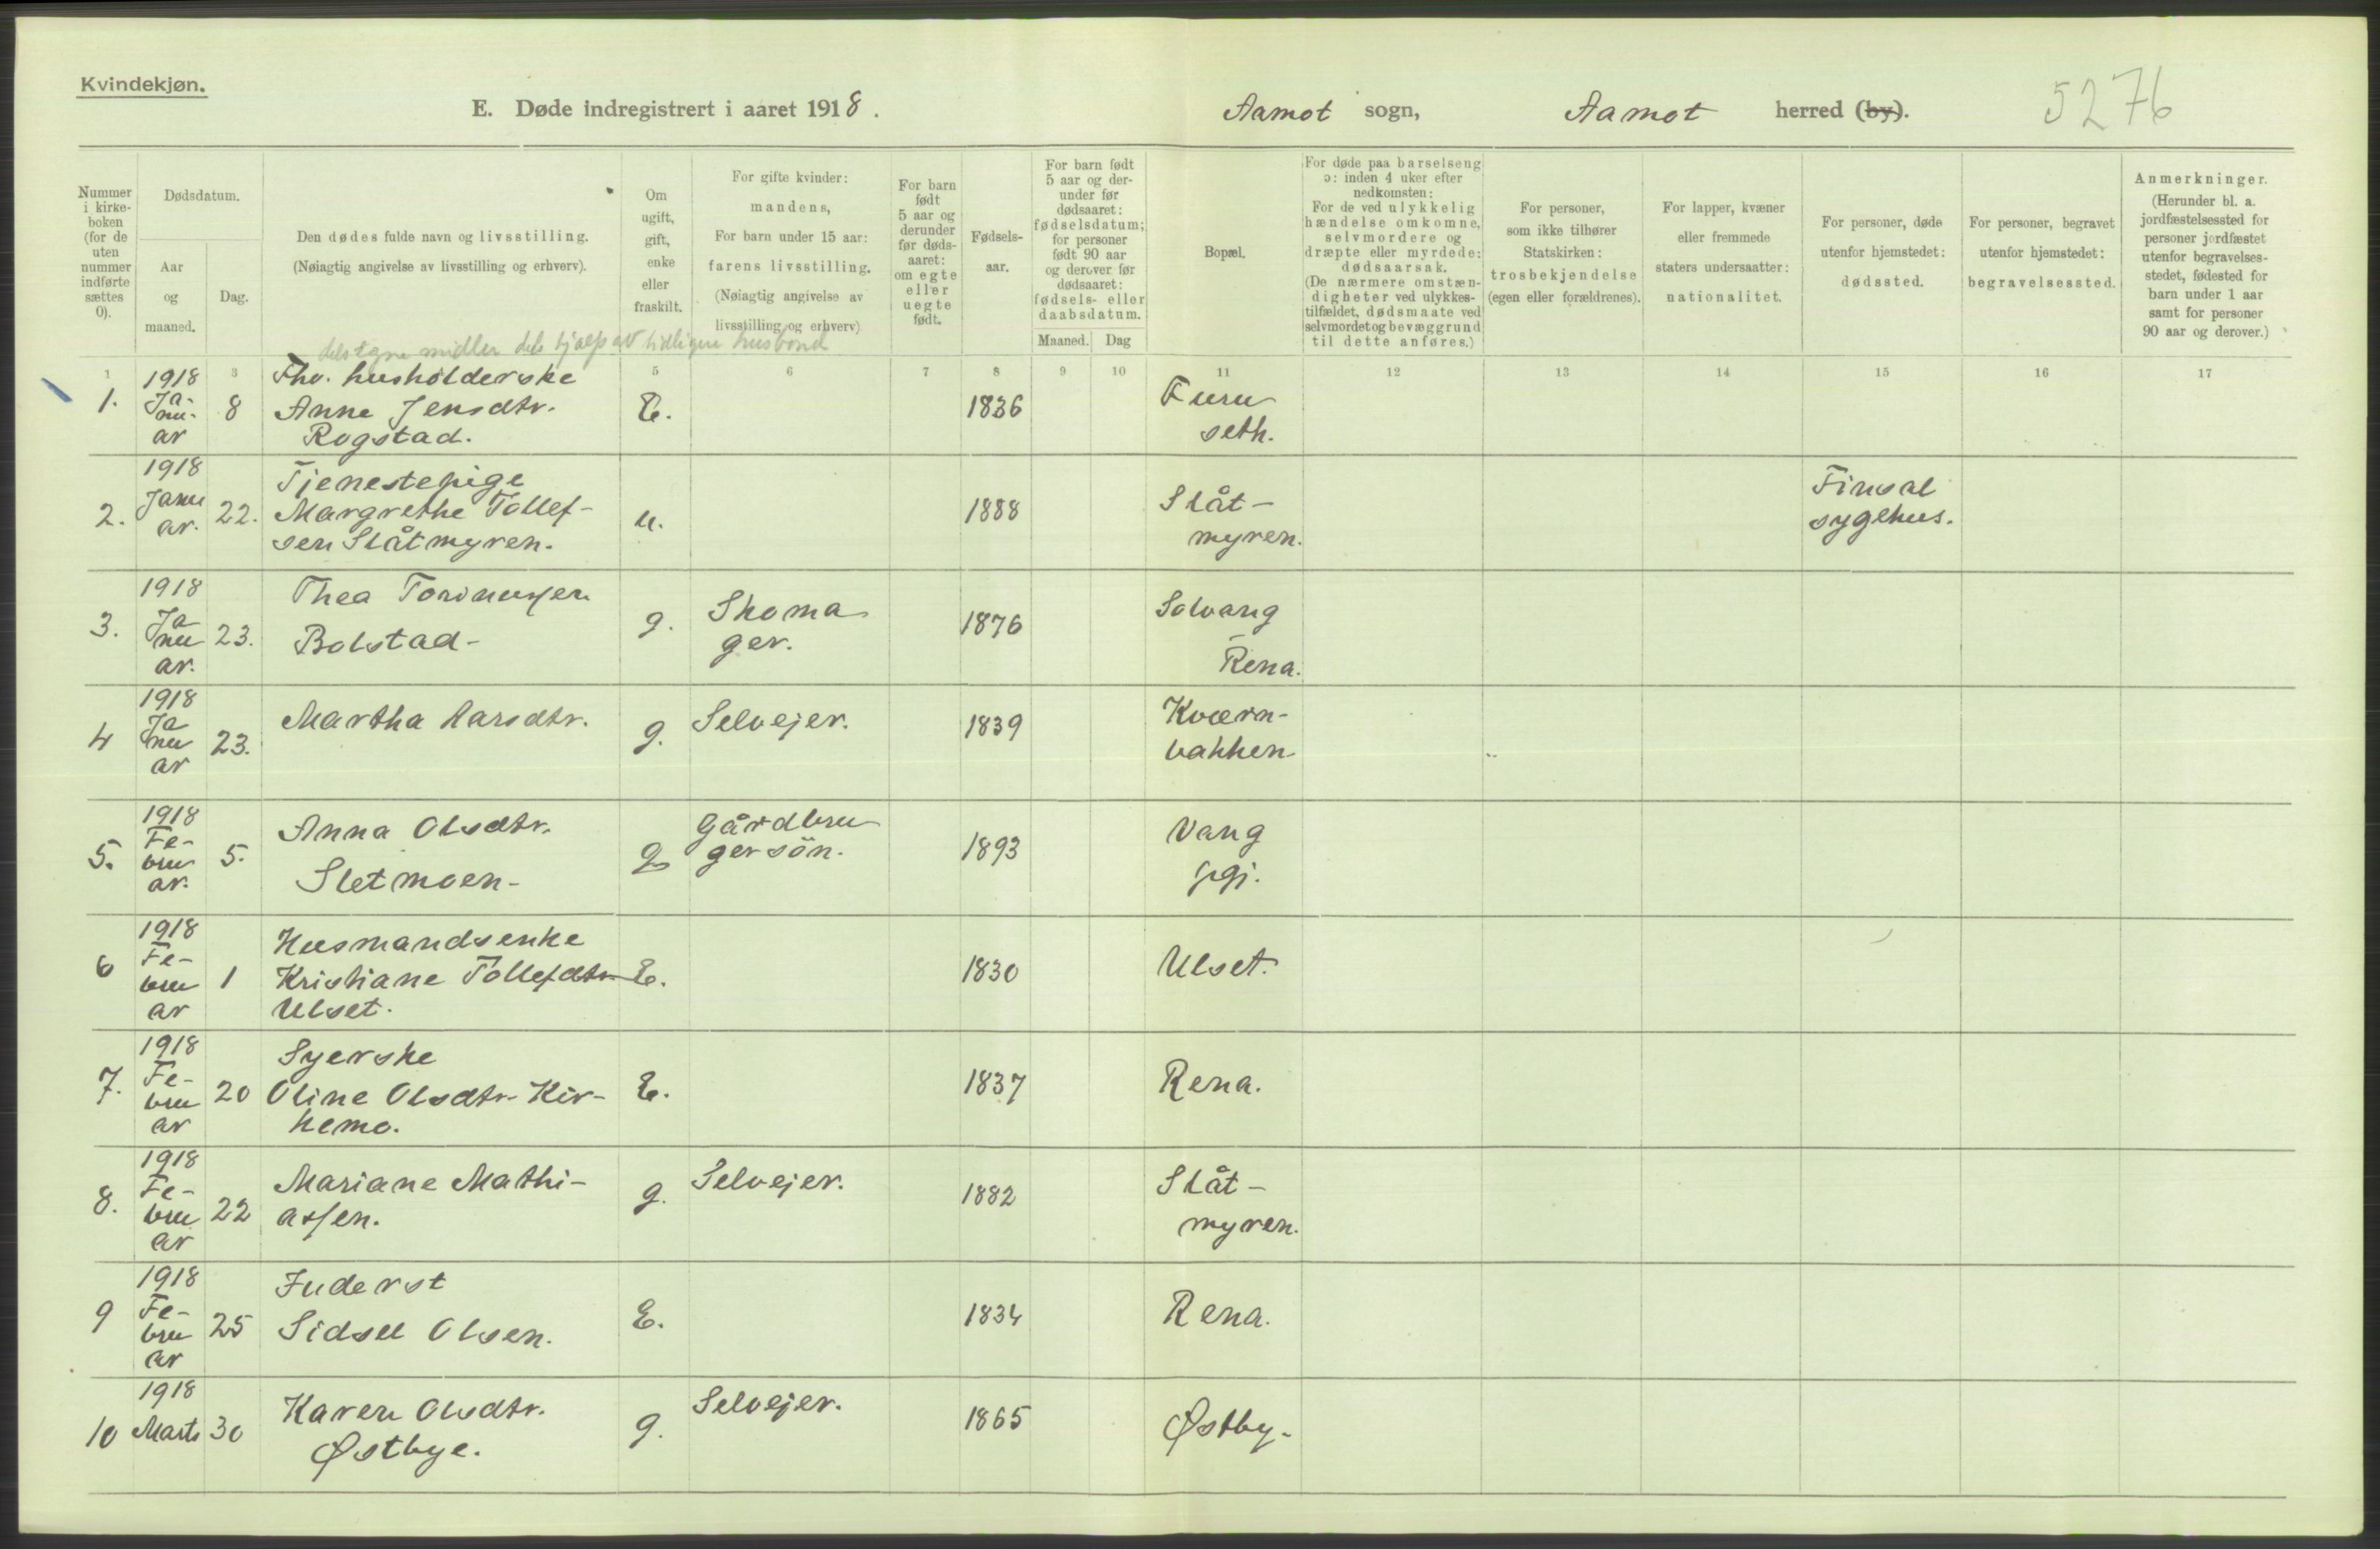 Kvindekjøn.
E. Døde indregistrert i aaret 1918.
Aamot sogn, Aamot herred (by).
5276
Nummer i kirke-boken (for de uten nummer indførte sættes 0).
Dødsdatum.
Aar og maaned.
Dag.
Den dødes fulde navn og livsstilling.
(Nøiagtig angivelse av livsstilling og erhverv).
Om ugift, gift, enke eller fraskilt.
For gifte kvinder: mandens,
For barn under 15 aar: farens livsstilling.
(Nøiagtig angivelse av livsstilling og erhverv)
For barn født 5 aar og derunder før døds-aaret: om egte eller uegte født.
Fødsels-aar.
For barn født 5 aar og der-under før dødsaaret: fødselsdatum; for personer født 90 aar og derover før dødsaaret: fødsels- eller daabsdatum.
Maaned. Dag
Bopæl.
For døde paa barselseng ɔ: inden 4 uker efter nedkomsten:
For de ved ulykkelig hændelse omkomne, selvmordere og dræpte eller myrdede: dødsaarsak.
(De nærmere omstæn-digheter ved ulykkes-tilfældet, dødsmaate ved selvmordet og bevæggrund til dette anføres.)
For personer, som ikke tilhører Statskirken: trosbekjendelse (egen eller forældrenes).
For lapper, kvæner eller fremmede staters undersaatter: nationalitet.
For personer, døde utenfor hjemstedet: dødssted.
For personer, begravet utenfor hjemstedet: begravelsessted.
Anmerkninger.
(Herunder bl. a. jordfæstelsessted for personer jordfæstet utenfor begravelses-stedet, fødested for barn under 1 aar samt for personer 90 aar og derover.)
dels egne midler dels hjælp av tidligere husbond
1 3 5 6 7 8 9 10 11 12 13 14 15 16 17
1. 1918 Ja-nu-ar 8 Fhv. husholderske Anne Jensdtr. Rogstad. E. 1836 Furuseth.
2. 1918 Januar. 22. Tjenestepige Margrethe Tollef-sen Slåtmyren. u. 1888 Slåt-myren. Finsal sygehus.
3. 1918 Januar. 23. Thea Bolstad- g. Skomager. 1876 Solvang Rena.
4 1918 Januar 23. Martha Larsdtr. g. Selvejer. 1839 Kværn-bakken
5. 1918 Fe-bruar. 5. Anna Olsdtr. Sletmoen- g Gårdbrugersön. 1893 Vang
6 1918 Fe-bruar 1 Husmandsenke Kristiane Tollefdtr. Ulset. E. 1830 Ulset.
7. 1918 Fe-bruar 20 Syerske Oline Olsdtr. Kir-kemo. E. 1837 Rena.
8. 1918 Fe-bruar 22 Mariane Mathi-assen. g. Selvejer. 1882 Slåt-myren.
9 1918 Fe-bruar 25 Inderst Sidsel Olsen. E. 1834 Rena.
10 1918 Marts 30 Karen Olsdtr. Østbye. g. Selvejer. 1865 Østby-